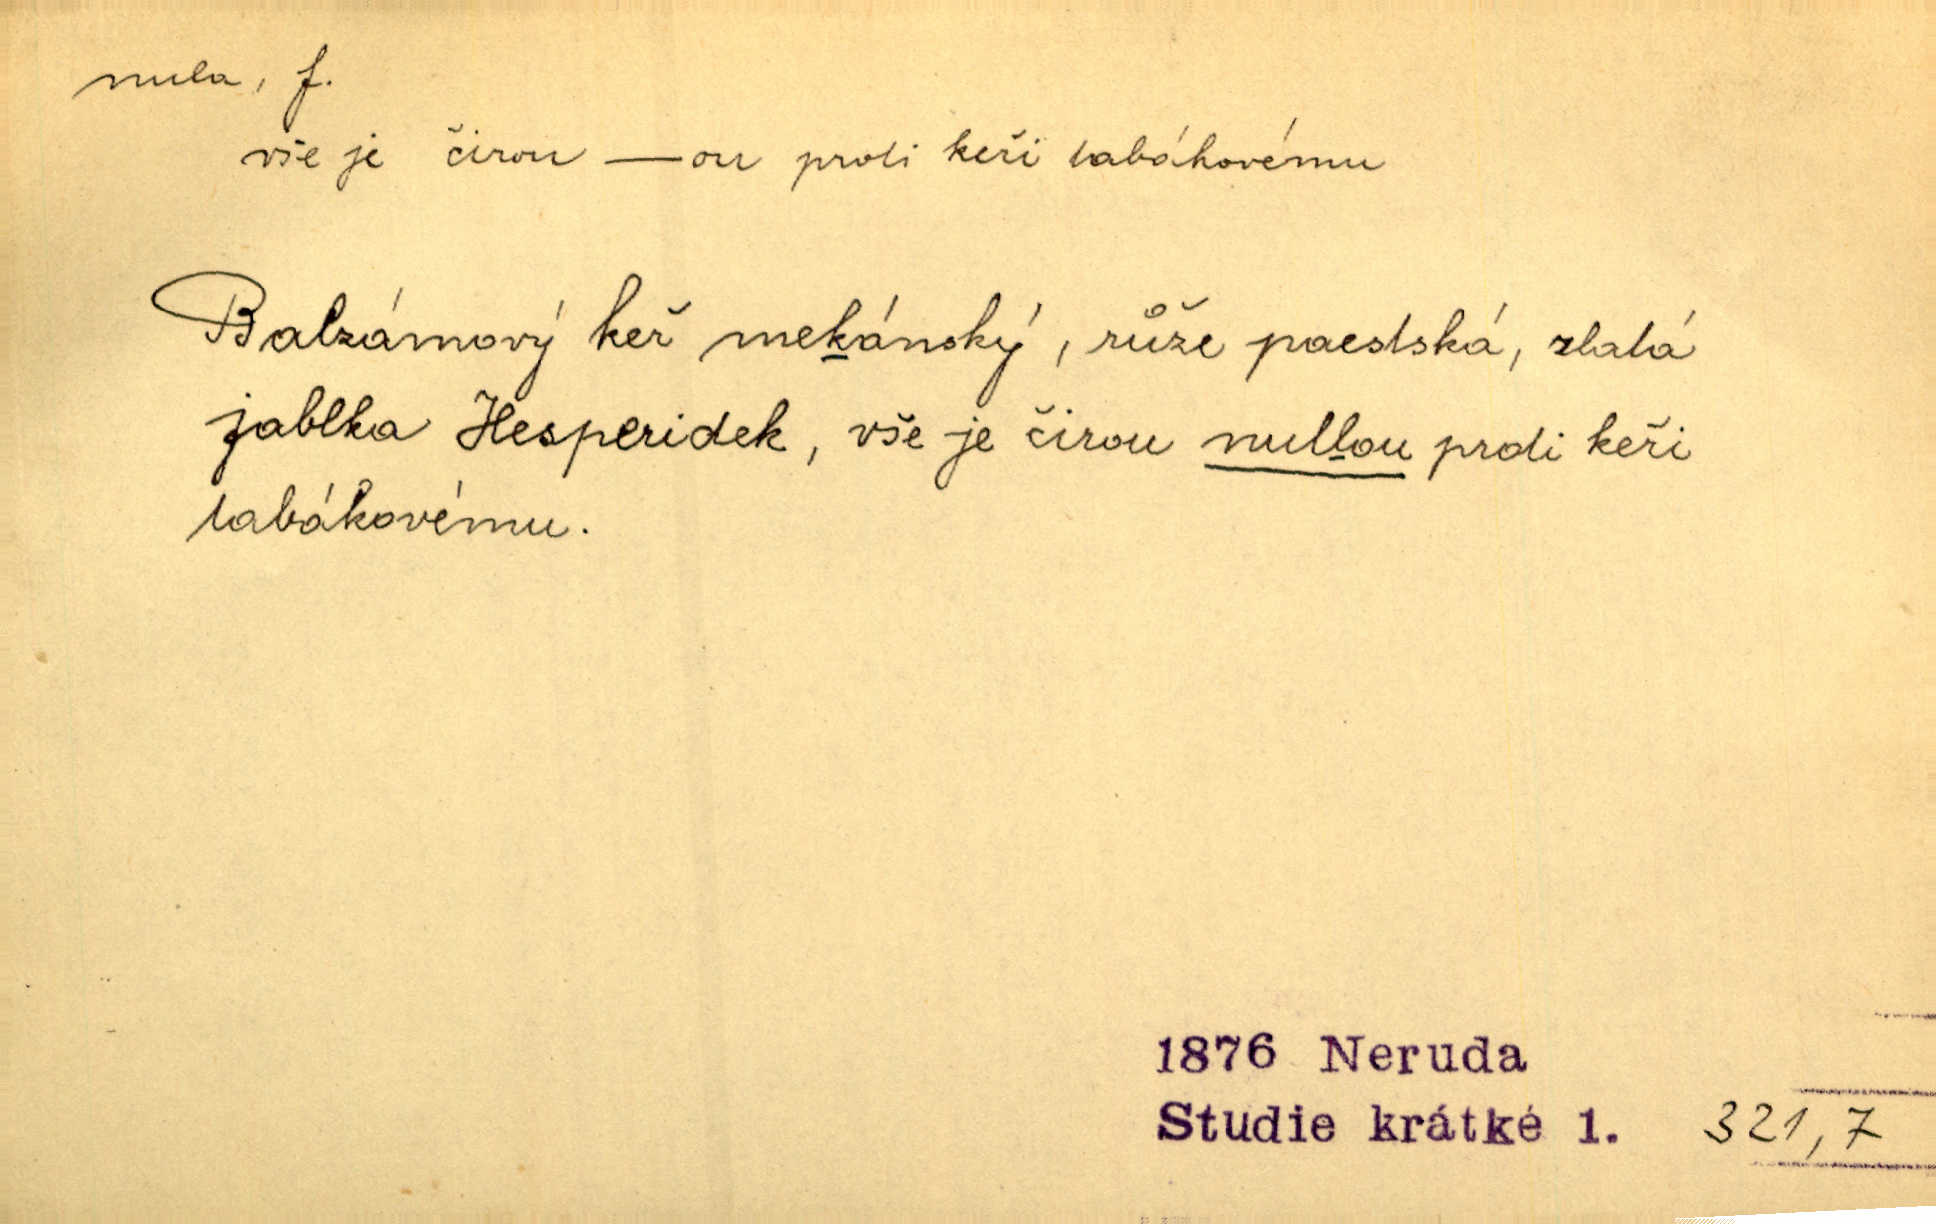 nula, f.
vše je čirou —ou proti keři tabákovému
Balzámový keř mekánský, růže paestská, zlatá
jablka Hesperidek, vše je čirou nullou proti keři
tabákovému.
1876 Neruda
Studie krátké 1. 321,7